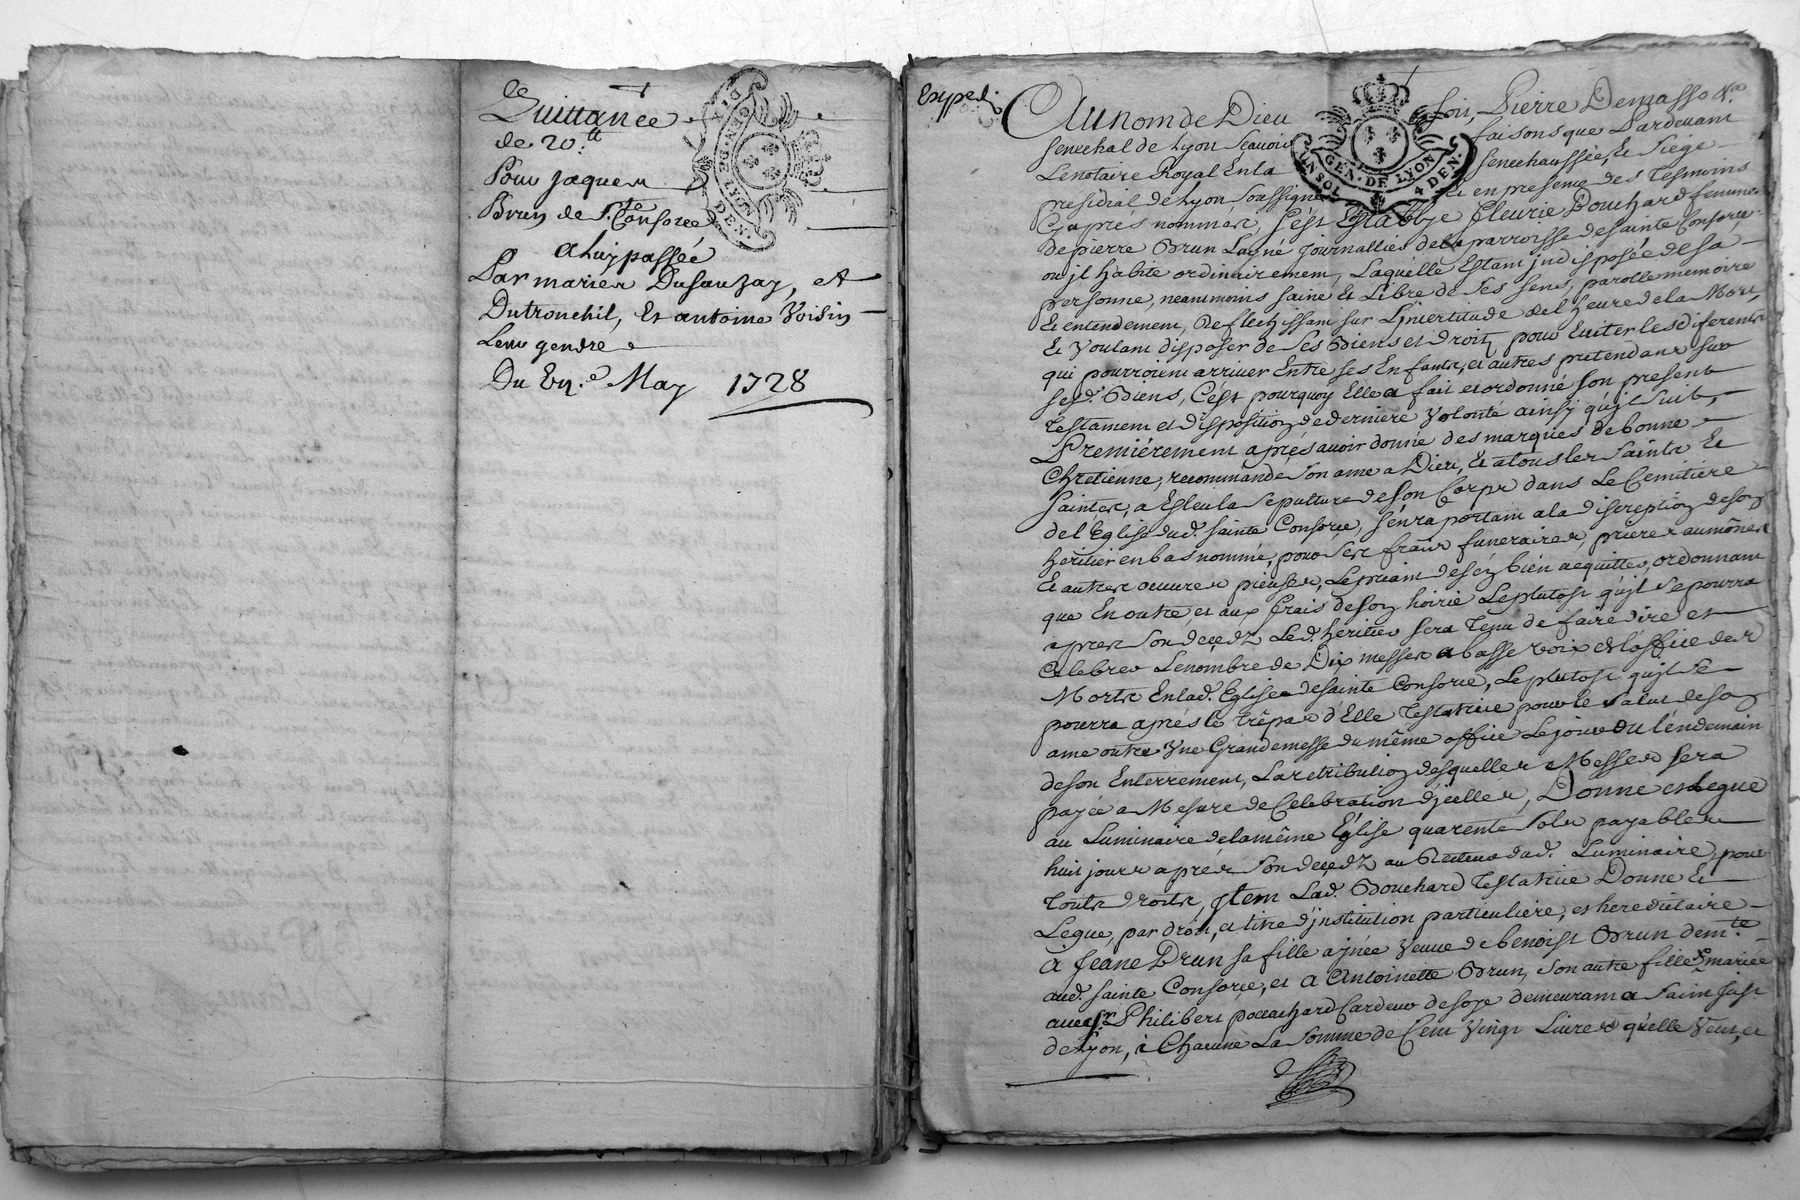 Quittance
de 20.tt
Pour Jaques
Brun de Ste Consorce
a luy passée
Par mariés Dusauzay, et
Dutronchil, Et antoine Voisin
Leur gendre
Du May 1728
GEN. DE LYON
DEN.
Exped.
Au nom de Dieu soit, Pierre Demasso
Senechal de Lyon Scavoir faisons que Pardevant
Le notaire Royal En la Senechaussée, Et Siege
presidial de Lyon Soussigné Et en presence des Tesmoins
Cy aprés nommés, S'est Establye Fleurie Bouchard femme
de pierre Brun Layné Journallier de la parroisse de Sainte Consorce,
ou jl habite ordinairement, Laquelle Estant jndisposée de sa
personne, neanmoins saine Et Libre de ses sens, parolle memoire
Et entendement, Reflechissant sur L'jncertitude de l'heure de la Mort,
Et Voulant disposer de ses Biens et droits pour Eviter les diferents
qui pourroient arriver Entre ses Enfants, et autres pretendans sur
sesd. Biens, C'est pourquoy Elle a fait et ordonné son present
Testament et disposition de derniere Volonté ainsy qu'jl suit,
Premiérement aprés avoir donné des marques de bonne
Chretienne, recommande Son ame a Dieu, Et a tous les Saints Et
Saintes, a Esleu la Sepulture de son Corps dans Le Cemitiere
de l'Eglise dud. Sainte Consorce, s'en raportant a la discreption de son
heritier en bas nommé, pour ses frais funeraires, prieres aumônes
Et autres oeuvres pieuses, Le priant de s'en bien acquitter, ordonnant
que En outre, et aux frais de son hoirie Le plutost qu'jl se pourra
apres Son decedz Led. heritier sera Tenu de faire dire et
Celebrer Le nombre de Dix messes a basse voix de l'office des
Morts En lad. Eglise de Sainte Consorce, Le plutost qu'jl se
pourra aprés le Trêpas d'Elle Testatrice pour le salut de son
ame outre Une Grande messe du même office Le jour ou l'endemain
de son Enterrement, La retribution desquelles Messes sera
payée a Mesure de Celebration d'jcelles, Donne et Legue
au Luminaire de la même Eglise quarente Sols payables
huit jours aprés Son decedz au Recteur dud. Luminaire, pour
Touts droits, Jtem Lad. Bouchard Testatrice Donne Et
Legue, par droit, et titre d'jnstitution particuliere, et hereditaire
à Jeane Brun sa fille aynée Veuve de benoist Brun dem.te
aud. Sainte Consorce, et a Antoinette Brun, Son autre fille mariée
avec Sr. Philibert Cardeur de soye demeurant a Saint Just
de Lyon, à Chacune La Somme de Cent Vingt Livres qu'elle Veut, et
GEN. DE LYON
UN SOL
4 DEN.